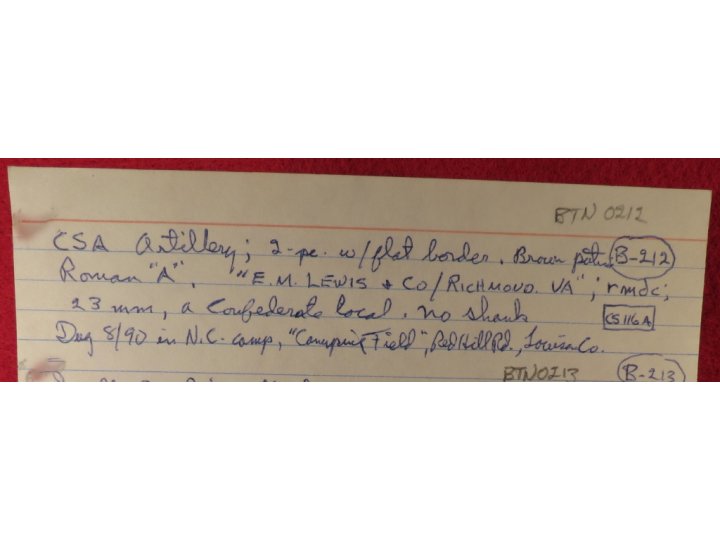 BTN 0212
CSA Artillery; 2-pc. w/flat border. Brown patina B-212
Roman "A". "E.M. LEWIS & CO/RICHMOND. VA"; rmdc;
23 mm, a Confederate local. no shank CS116A
Dug 8/90 in N.C. camp, "Camping Field", Red Hill Rd., Louisa Co.
BTN0213 B-213